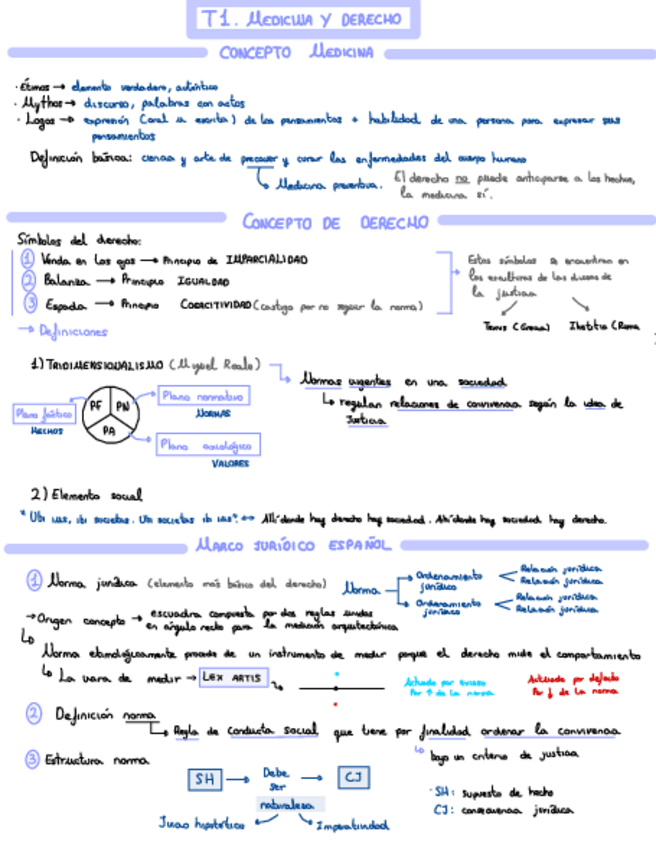 T1. MEDICINA Y DERECHO
CONCEPTO MEDICINA
· Étimos → elemento verdadero, auténtico
· Mythos → discurso, palabras con actos
· Logos → expresión (oral u escrita) de los pensamientos + habilidad de una persona para expresar sus
pensamientos
Definición básica: ciencia y arte de precaver y curar las enfermedades del cuerpo humano
↳ Medicina preventiva.
El derecho no puede anticiparse a los hechos,
la medicina sí.
CONCEPTO DE DERECHO
Símbolos del derecho:
① Venda en los ojos → Principio de IMPARCIALIDAD
② Balanza → Principio IGUALDAD
③ Espada → Principio COERCITIVIDAD (castigo por no seguir la norma)
Estos símbolos se encuentran en
las esculturas de las diosas de
la justicia
Temis (Grecia) Iustitia (Roma
→ Definiciones
1) TRIDIMENSIONALISMO (Miguel Reale)
Normas vigentes en una sociedad
↳ regulan relaciones de convivencia según la idea de
Justicia
PF PN PA
Plano fáctico
HECHOS
Plano normativo
NORMAS
Plano axiológico
VALORES
2) Elemento social
"Ubi ius, ibi societas. Ubi societas ibi ius" ↔ Allí donde hay derecho hay sociedad. Ahí donde hay sociedad hay derecho.
MARCO JURÍDICO ESPAÑOL
① Norma jurídica (elemento más básico del derecho)
Norma
Ordenamiento
jurídico
Relación jurídica
Relación jurídica
Ordenamiento
jurídico
Relación jurídica
Relación jurídica
→ Origen concepto → escuadra compuesta por dos reglas unidas
en ángulo recto para la medición arquitectónica
↳ Norma etimológicamente procede de un instrumento de medir porque el derecho mide el comportamiento
↳ La vara de medir → LEX ARTIS
Actuado por exceso
Por ↑ de la norma
Actuado por defecto
Por ↓ de la norma
② Definición norma
↳ Regla de conducta social que tiene por finalidad ordenar la convivencia
↳ bajo un criterio de justicia
③ Estructura norma
SH → Debe ser → CJ
naturaleza
Juicio hipotético
Imperatividad
· SH: supuesto de hecho
CJ: consecuencia jurídica